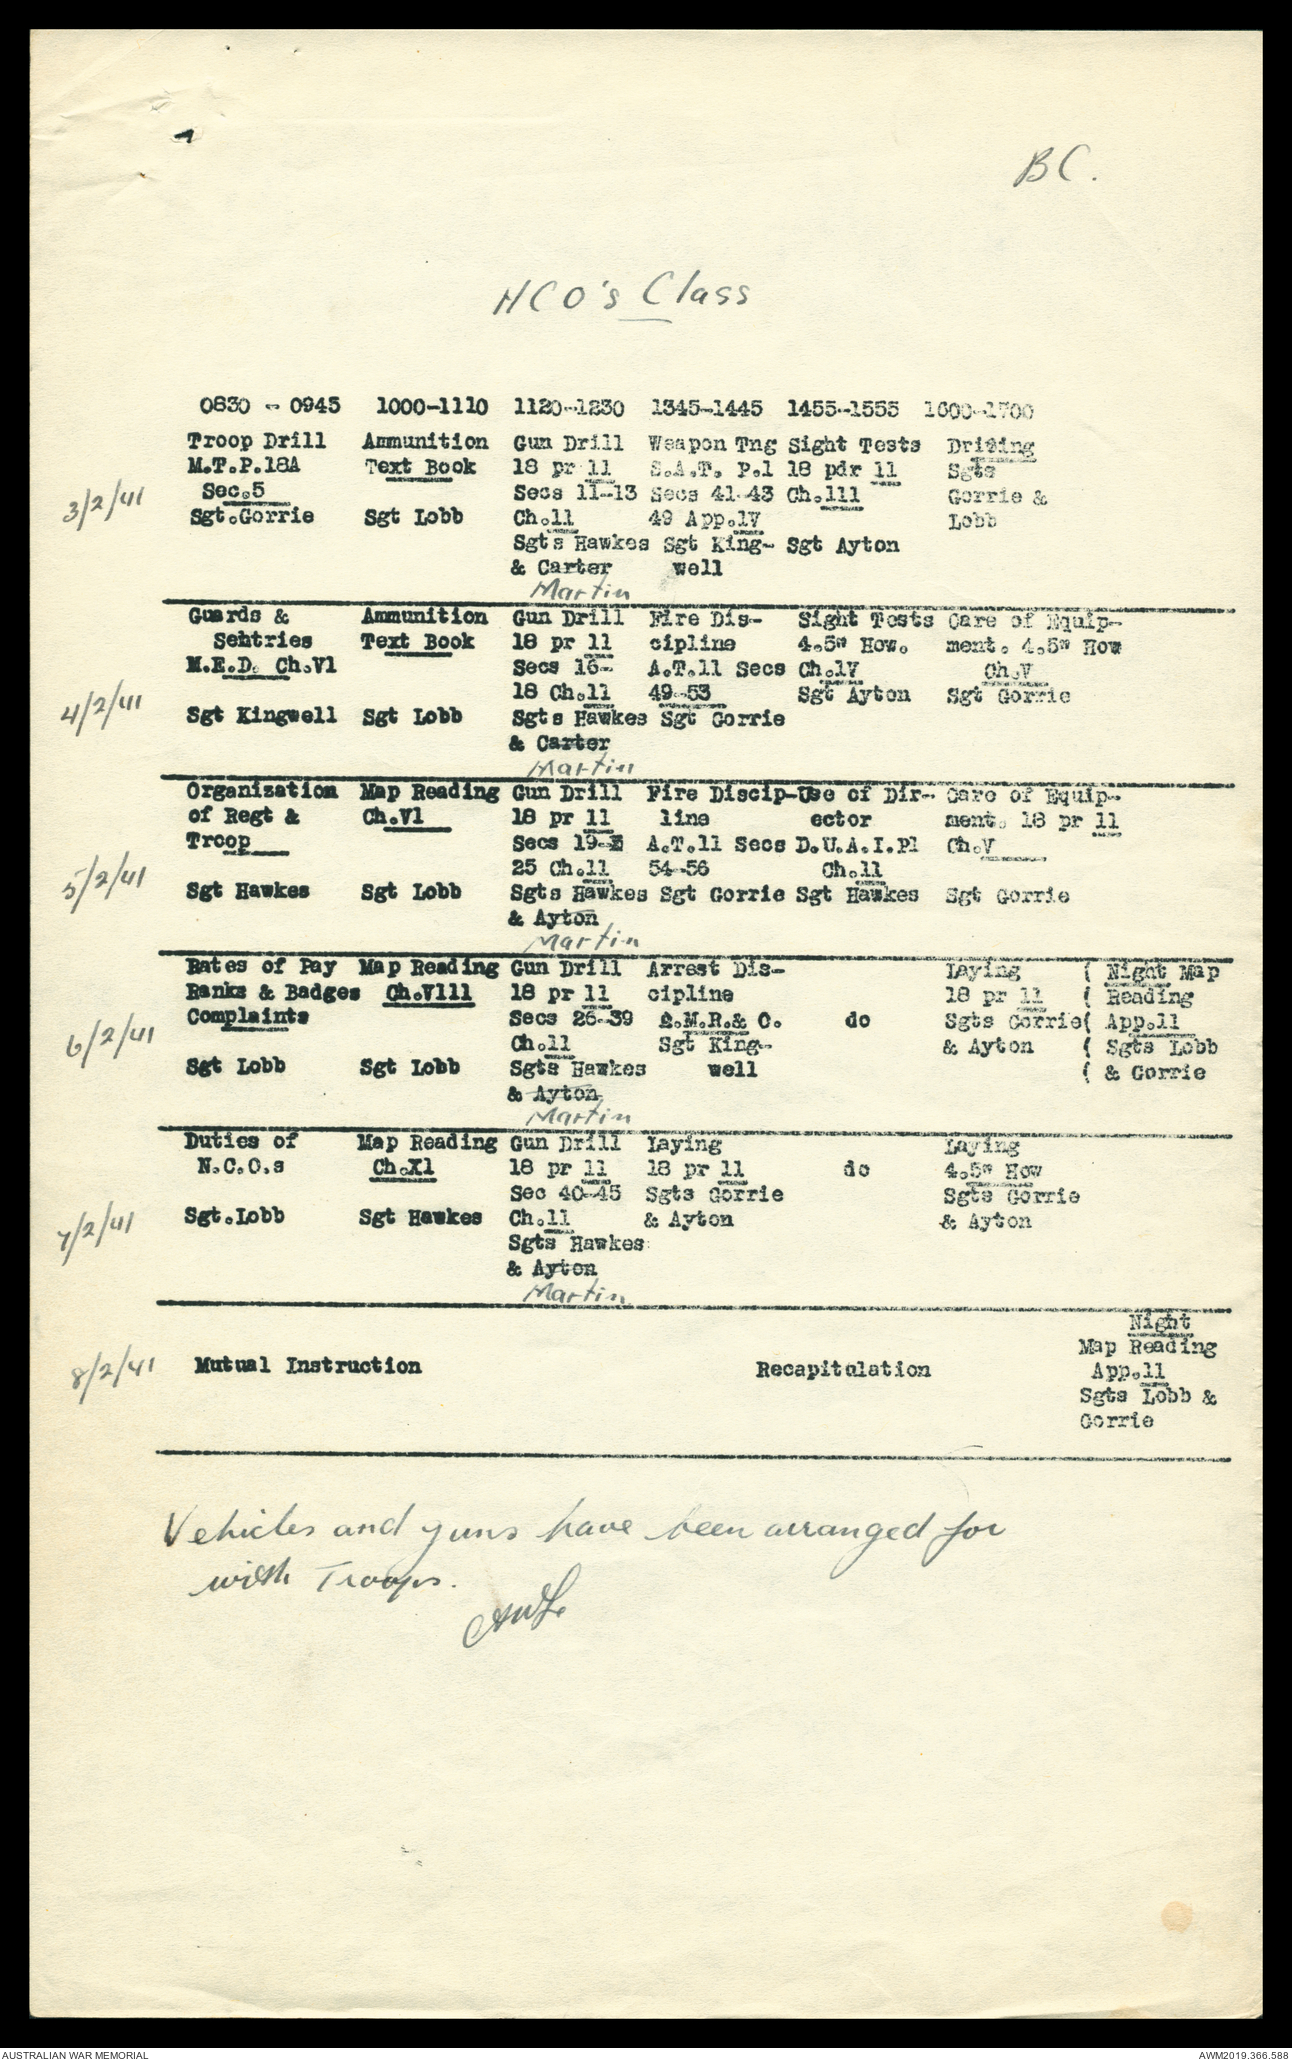 BC.
NCO's Class
0830 - 0945 1000-1110 1120-1230 1345-1445 1455-1555 1600-1700
Troop Drill Ammunition Gun Drill Weapon Tng Sight Tests Driving
M.T.P.18A Text Book 18 pr 11 S.A.T. P.1 18 pdr 11 Sgts
Sec.5 Secs 11-13 Secs 41-43 Ch.111 Gorrie &
3/2/41
Sgt.Gorrie Sgt Lobb Ch.11 49 App.1V Lobb
Sgts Hawkes Sgt King- Sgt Ayton
& Carter well
Martin
Guards & Ammunition Gun Drill Fire Dis- Sight Tests Care of Equip-
Sentries Text Book 18 pr 11 cipline 4.5" How. ment. 4.5" How
M.E.D. Ch.V1 Secs 16- A.T.11 Secs Ch.1V Ch.V
18 Ch.11 49-53 Sgt Ayton Sgt Gorrie
4/2/41
Sgt Kingwell Sgt Lobb Sgts Hawkes Sgt Gorrie
& Carter
Martin
Organization Map Reading Gun Drill Fire Discip- Use of Dir- Care of Equip-
of Regt & Ch.V1 18 pr 11 line ector ment. 18 pr 11
Troop Secs 19- A.T.11 Secs D.U.A.I.P1 Ch.V
25 Ch.11 54-56 Ch.11
5/2/41
Sgt Hawkes Sgt Lobb Sgts Hawkes Sgt Gorrie Sgt Hawkes Sgt Gorrie
& Ayton
Martin
Rates of Pay Map Reading Gun Drill Arrest Dis- Laying ( Night Map
Ranks & Badges Ch.V111 18 pr 11 cipline 18 pr 11 ( Reading
Complaints Secs 26-39 A.M.R.& O. do Sgts Gorrie( App.11
6/2/41
Ch.11 Sgt King- & Ayton ( Sgts Lobb
Sgt Lobb Sgt Lobb Sgts Hawkes well ( & Gorrie
& Ayton
Martin
Duties of Map Reading Gun Drill Laying Laying
N.C.O.s Ch.X1 18 pr 11 18 pr 11 do 4.5" How
Sec 40-45 Sgts Gorrie Sgts Gorrie
7/2/41
Sgt.Lobb Sgt Hawkes Ch.11 & Ayton & Ayton
Sgts Hawkes
& Ayton
Martin
Night
Map Reading
8/2/41
Mutual Instruction Recapitulation App.11
Sgts Lobb &
Gorrie
Vehicles and guns have been arranged for
with Troops.
AUSTRALIAN WAR MEMORIAL AWM2019.366.588